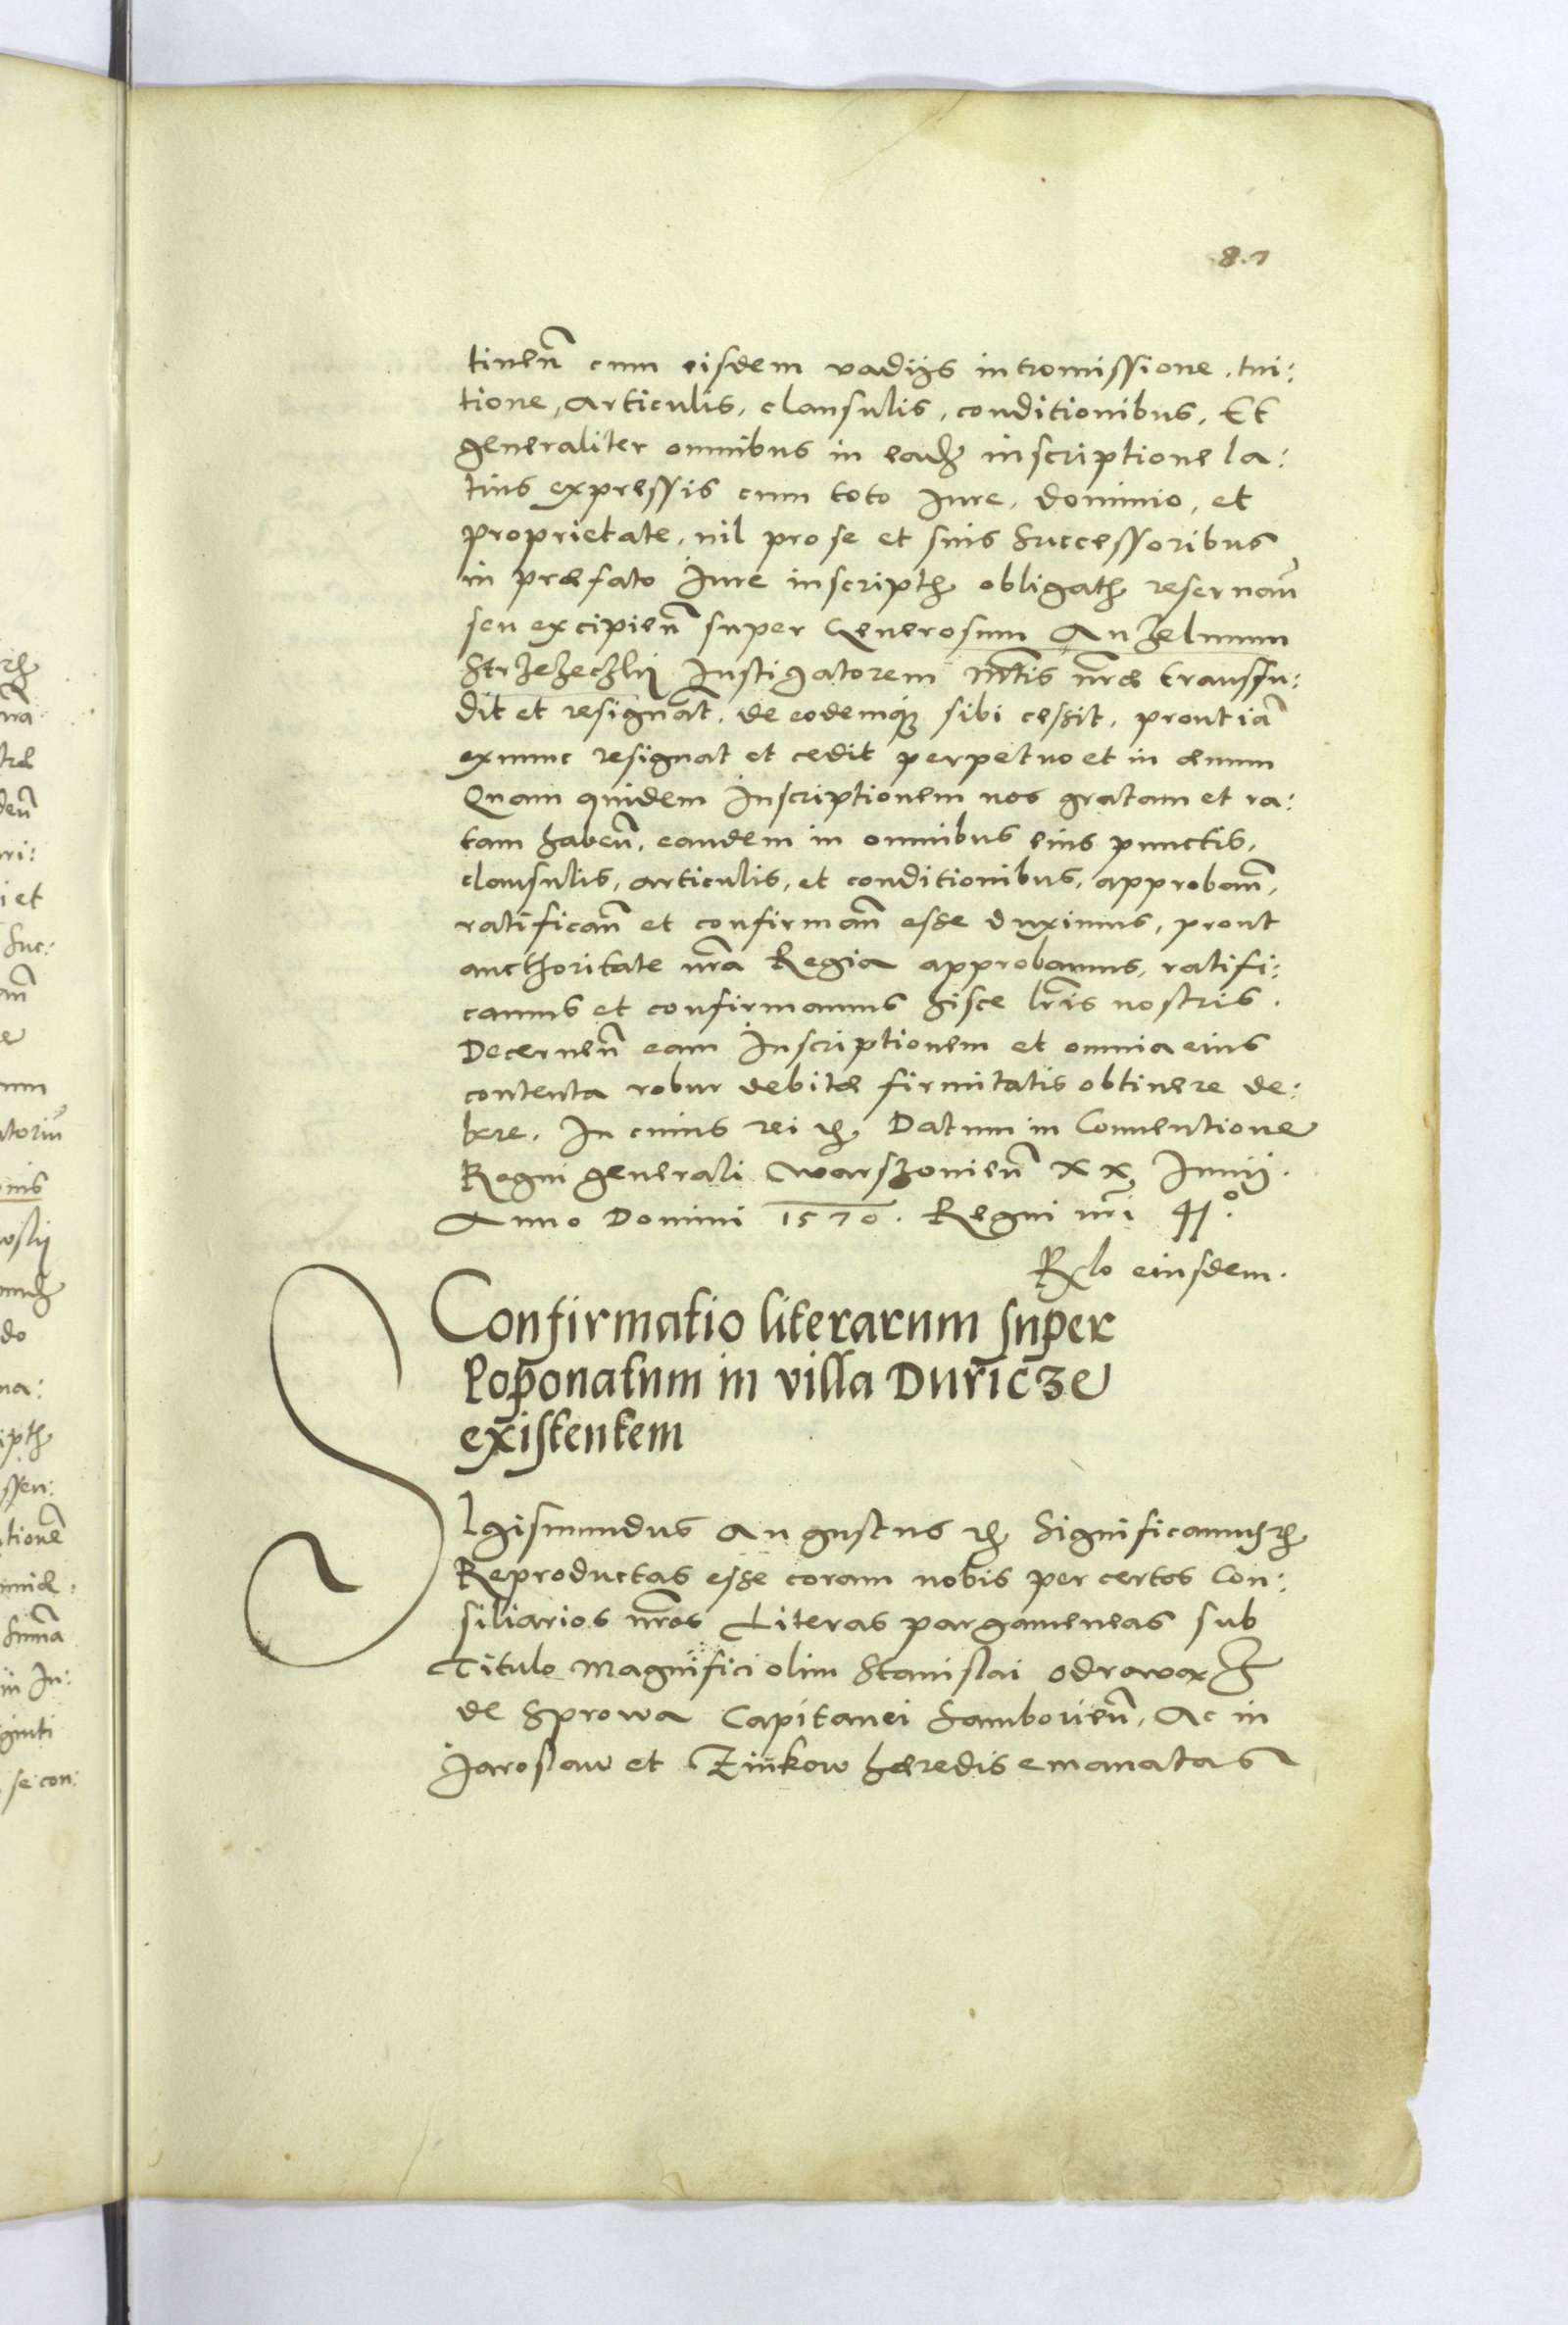 8.7
tinen̄ cum eisdem vadijs intromissione, tui:
tione, articulis, clausulis, conditionibus, Et
generaliter omnibus in eadȝ inscriptione la:
tius expressis cum toto Iure, dominio, et
proprietate, nil pro se et suis Successoribus
in præfato Iure inscriptȝ obligatȝ reservan̄
seu excipien̄ super Generosum Anzelmum
Strzezeczkij Instigatorem Mtis nræ transfu:
dit et resignavt, de eodemq̨ sibi cessit, prout iā
exnunc resignat et cedit perpetuo et in ævum
Quam quidem Inscriptionem nos gratam et ra:
tam haben̄, eandem in omnibus eius punctis,
clausulis, articulis, et conditionibus, approban̄,
ratifican̄ et confirman̄ esse duximus, prout
aucthoritate nr̄a Regia approbamus, ratifi:
camus et confirmamus hisce lr̄is nostris.
Decernen̄ eam Inscriptionem et omnia eius
contenta robur debitæ firmitatis obtinere de:
bere. In cuius rei ꝛȝ Datum in Conventione
Regni generali Warszovien̄ XX Iunij.
Anno Domini 1570. Regni nr̄i 41.°
Rlo eiusdem.
Confirmatio literarum super
Poponatum in villa Duricze
existentem
SIgismundus Augustus ꝛȝ Significamus ꝛȝ
Reproductas esse coram nobis per certos Con:
siliarios nr̄os Literas pargameneas sub
Titulo Magnifici olim Stanislai Odrowąż
de Sprowa Capitanei Samborien̄, Ac in
Jaroslaw et Zinkow hæredis emanatas